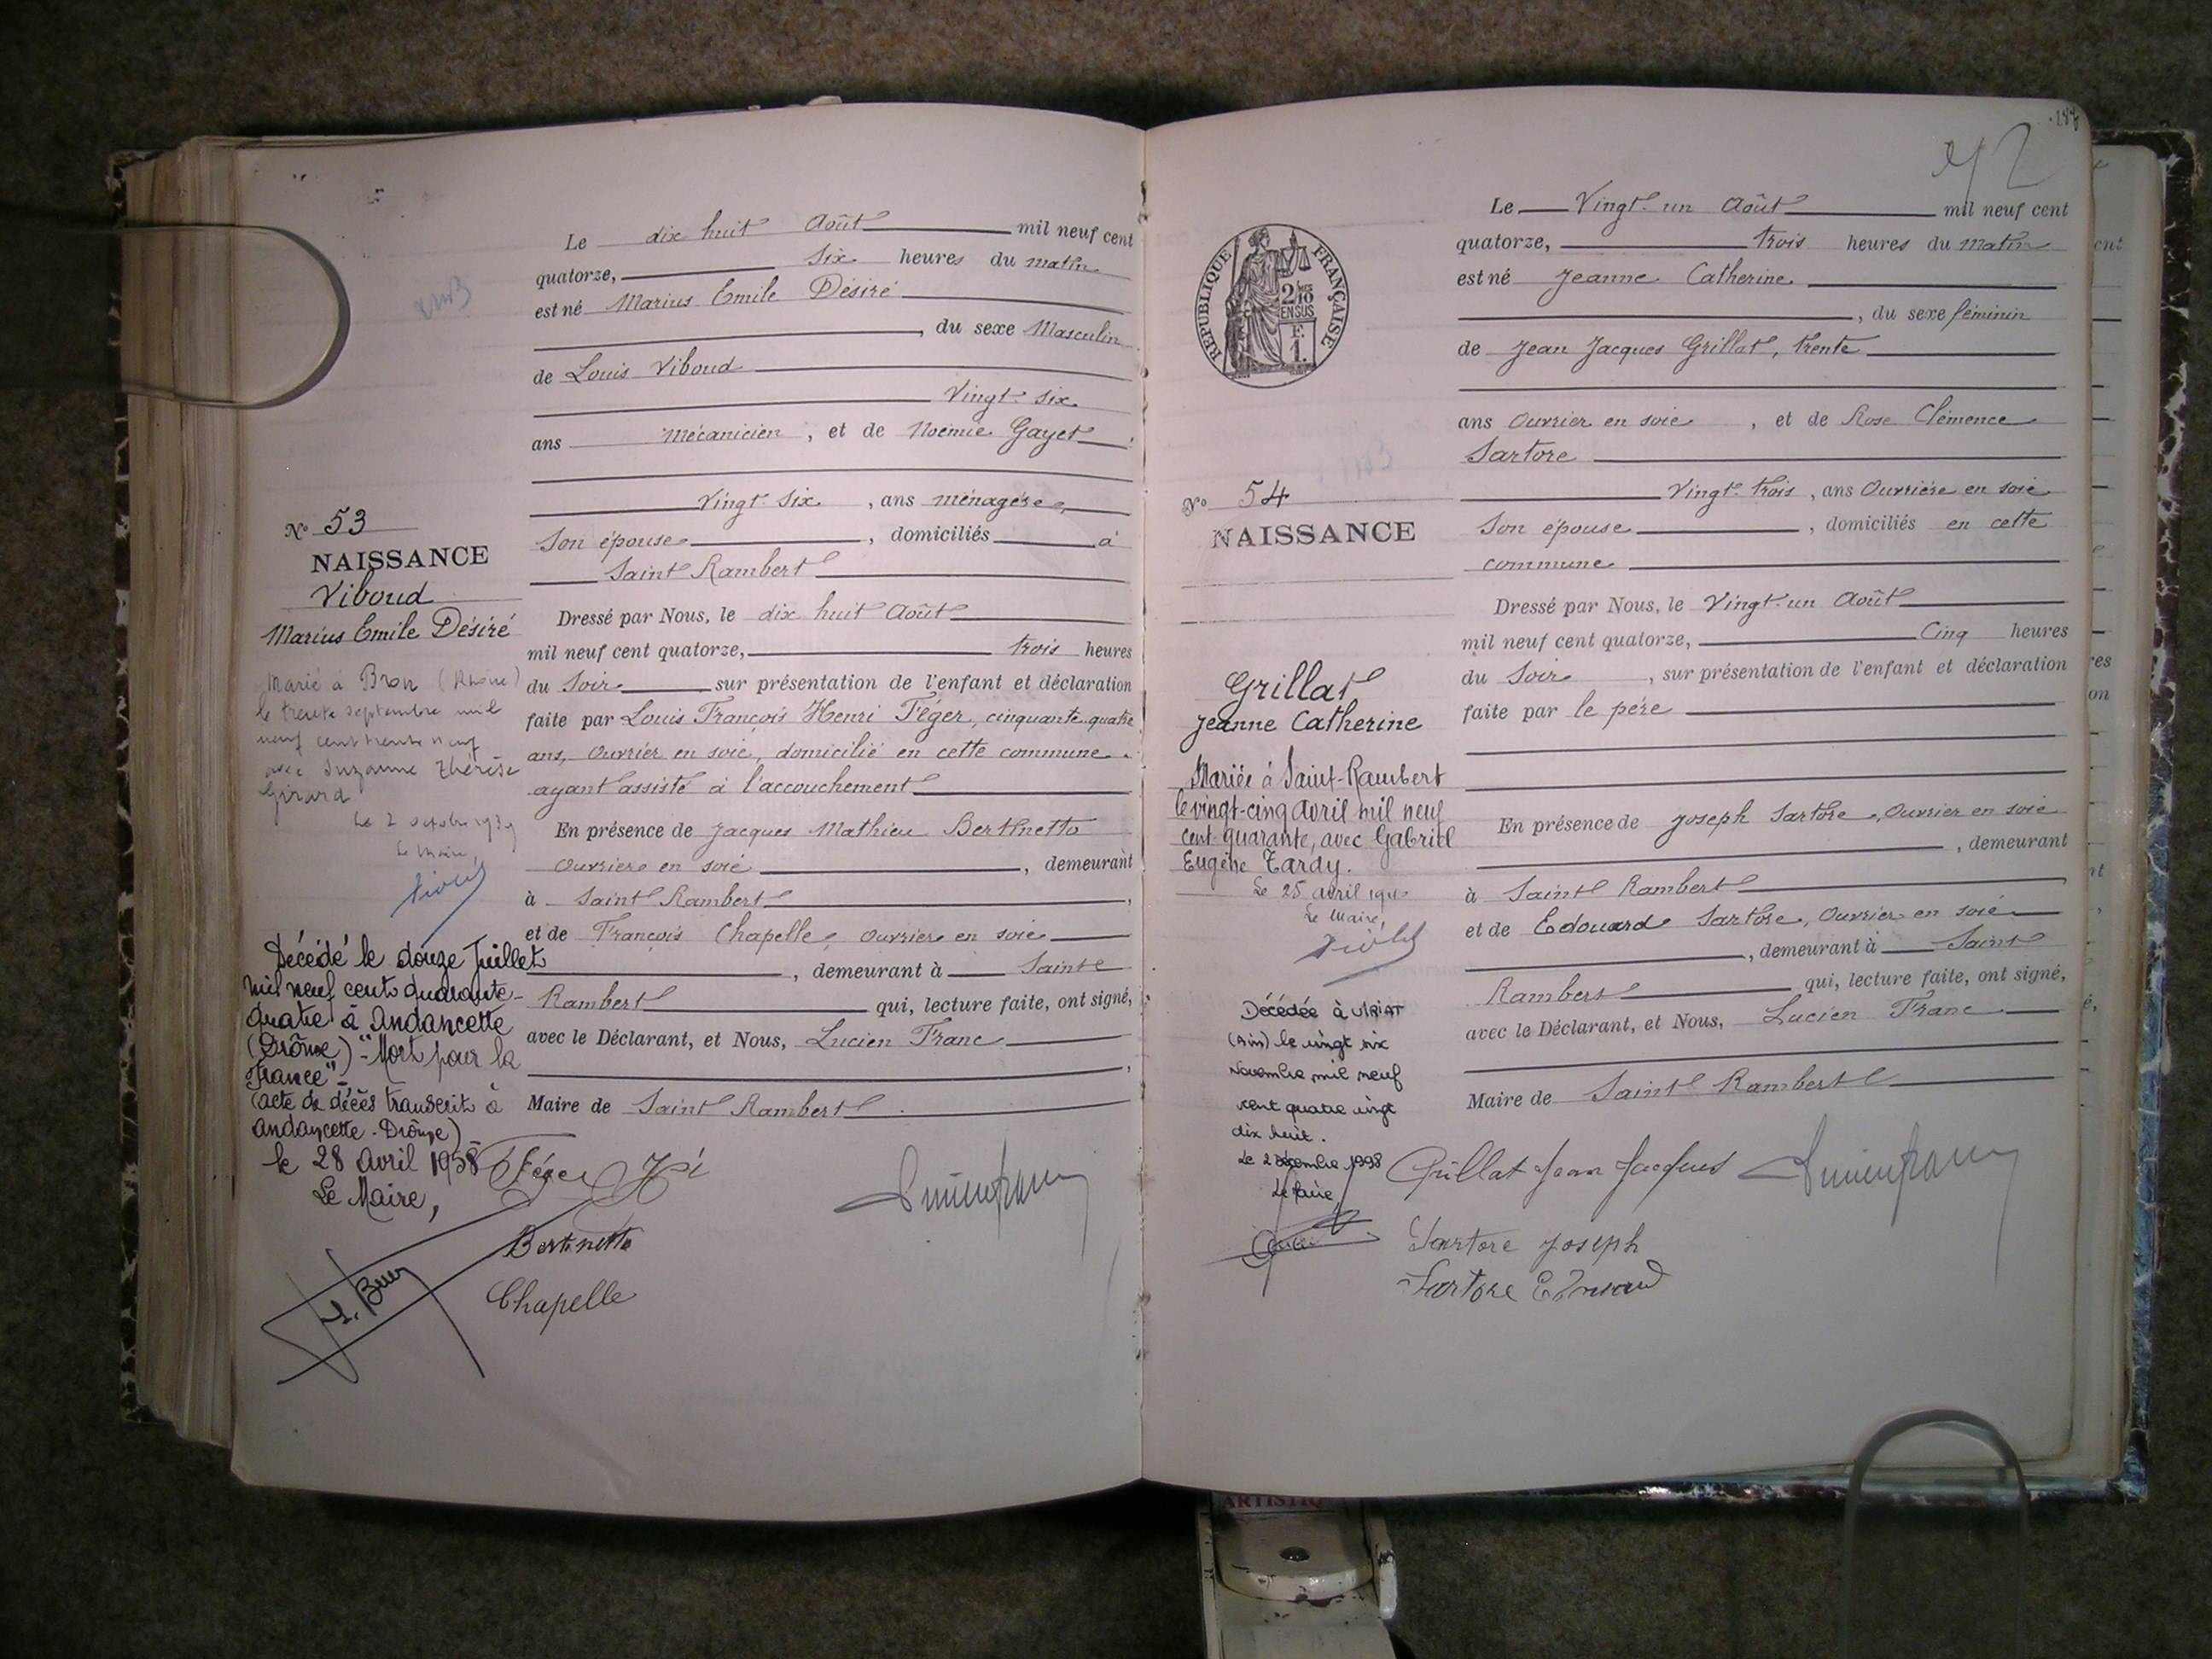 Le dix huit Août mil neuf cent
quatorze, Six heures du matin
est né Marius Emile Désiré
, du sexe Masculin
de Louis Viboud
Vingt-six
ans mécanicien, et de Noémie Gayet
Vingt-six, ans ménagère
Son épouse, domiciliés à
Saint Rambert
Dressé par Nous, le dix huit Août
mil neuf cent quatorze, trois heures
du Soir sur présentation de l'enfant et déclaration
faite par Louis François Henri Féger, cinquante-quatre
ans, Ouvrier en soie, domicilié en cette commune
ayant assisté à l'accouchement
En présence de Jacques Mathieu Berthetto
Ouvrier en soie, demeurant
à Saint Rambert,
et de François Chapelle, Ouvrier en soie
, demeurant à Saint
Rambert qui, lecture faite, ont signé,
avec le Déclarant, et Nous, Lucien Franc
,
Maire de Saint Rambert
N° 53
NAISSANCE
Viboud
Marius Emile Désiré
Marié à Bron (Rhône)
le trente septembre mil
neuf cent trente neuf
avec Suzanne Thérèse
Girard
Le 2 octobre 1939
Le Maire,
Décédé le douze Juillet
mil neuf cent quarante-
quatre à Andancette
(Drôme) "Mort pour la
France"
(acte de décès transcrit à
Andancette - Drôme)
le 28 Avril 1958
Le Maire,
Féger
Bertinetto
Chapelle
Le Vingt-un Août mil neuf cent
quatorze, trois heures du Matin
est né Jeanne Catherine
, du sexe féminin
de Jean Jacques Grillat, trente
ans Ouvrier en soie, et de Rose Clémence
Sartore
Vingt-trois, ans Ouvrière en soie
Son épouse, domiciliés en cette
commune
Dressé par Nous, le Vingt-un Août
mil neuf cent quatorze, Cinq heures
du Soir, sur présentation de l'enfant et déclaration
faite par le père
En présence de Joseph Sartore, Ouvrier en soie
, demeurant
à Saint Rambert
et de Edouard Sartore, Ouvrier en soie
, demeurant à Saint
Rambert qui, lecture faite, ont signé,
avec le Déclarant, et Nous, Lucien Franc
Maire de Saint Rambert
RÉPUBLIQUE FRANÇAISE
2/10
EN SUS
F.
1.
N° 54
NAISSANCE
Grillat
Jeanne Catherine
Mariée à Saint-Rambert
le vingt-cinq avril mil neuf
cent quarante, avec Gabriel
Eugène Tardy.
Le 25 avril 1940
Le Maire,
Décédée à VIRIAT
(Ain) le vingt six
Novembre mil neuf
cent quatre vingt
dix huit.
Le 2 décembre 1998
Le Maire
Grillat Jean Jacques
Sartore Joseph
Sartore Edouard
ARTISTIQ